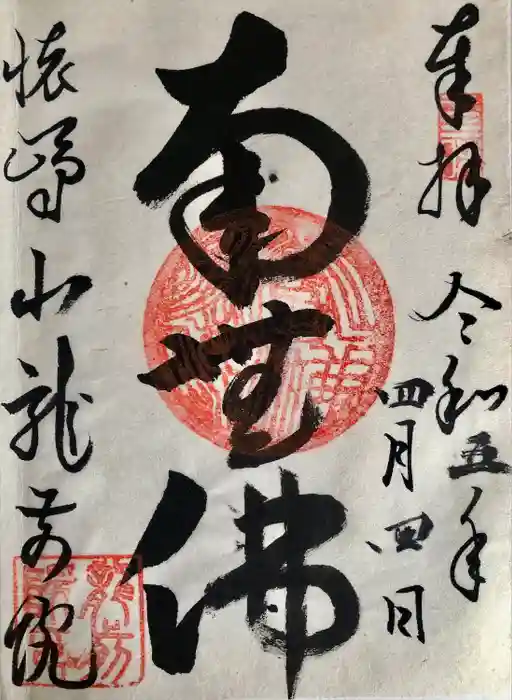 奉拝
令和五年
四月四日
南無佛
山龍
院